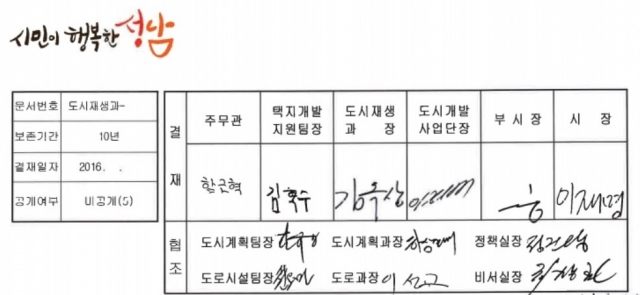 시민이 행복한 성남
문서번호 도시재생과-
보존기간 10년
결재일자 2016. .
공개여부 비공개(5)
결재
주무관 택지개발지원팀장 도시재생과장 도시개발사업단장 부시장 시장
함근혁 김옥상 이재명
협조
도시계획팀장 도시계획과장 정책실장
도로시설팀장 도로과장 이선규 비서실장